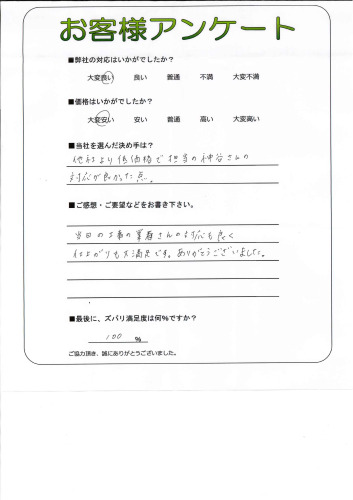 お客様アンケート
■弊社の対応はいかがでしたか?
大変良い 良い 普通 不満 大変不満
■価格はいかがでしたか?
大変安い 安い 普通 高い 大変高い
■当社を選んだ決め手は?
他社より低価格で担当の神谷さんの
対応が良かった点。
■ご感想・ご要望などをお書き下さい。
当日の工事の業者さんの対応も良く
仕上がりも大満足です。ありがとうございました。
■最後に、ズバリ満足度は何%ですか?
100 %
ご協力頂き、誠にありがとうございました。